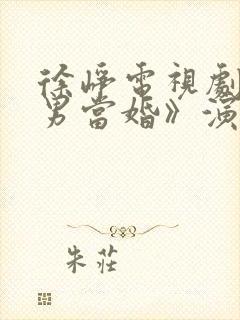 徐崢電視劇
男當婚》演
朱莊